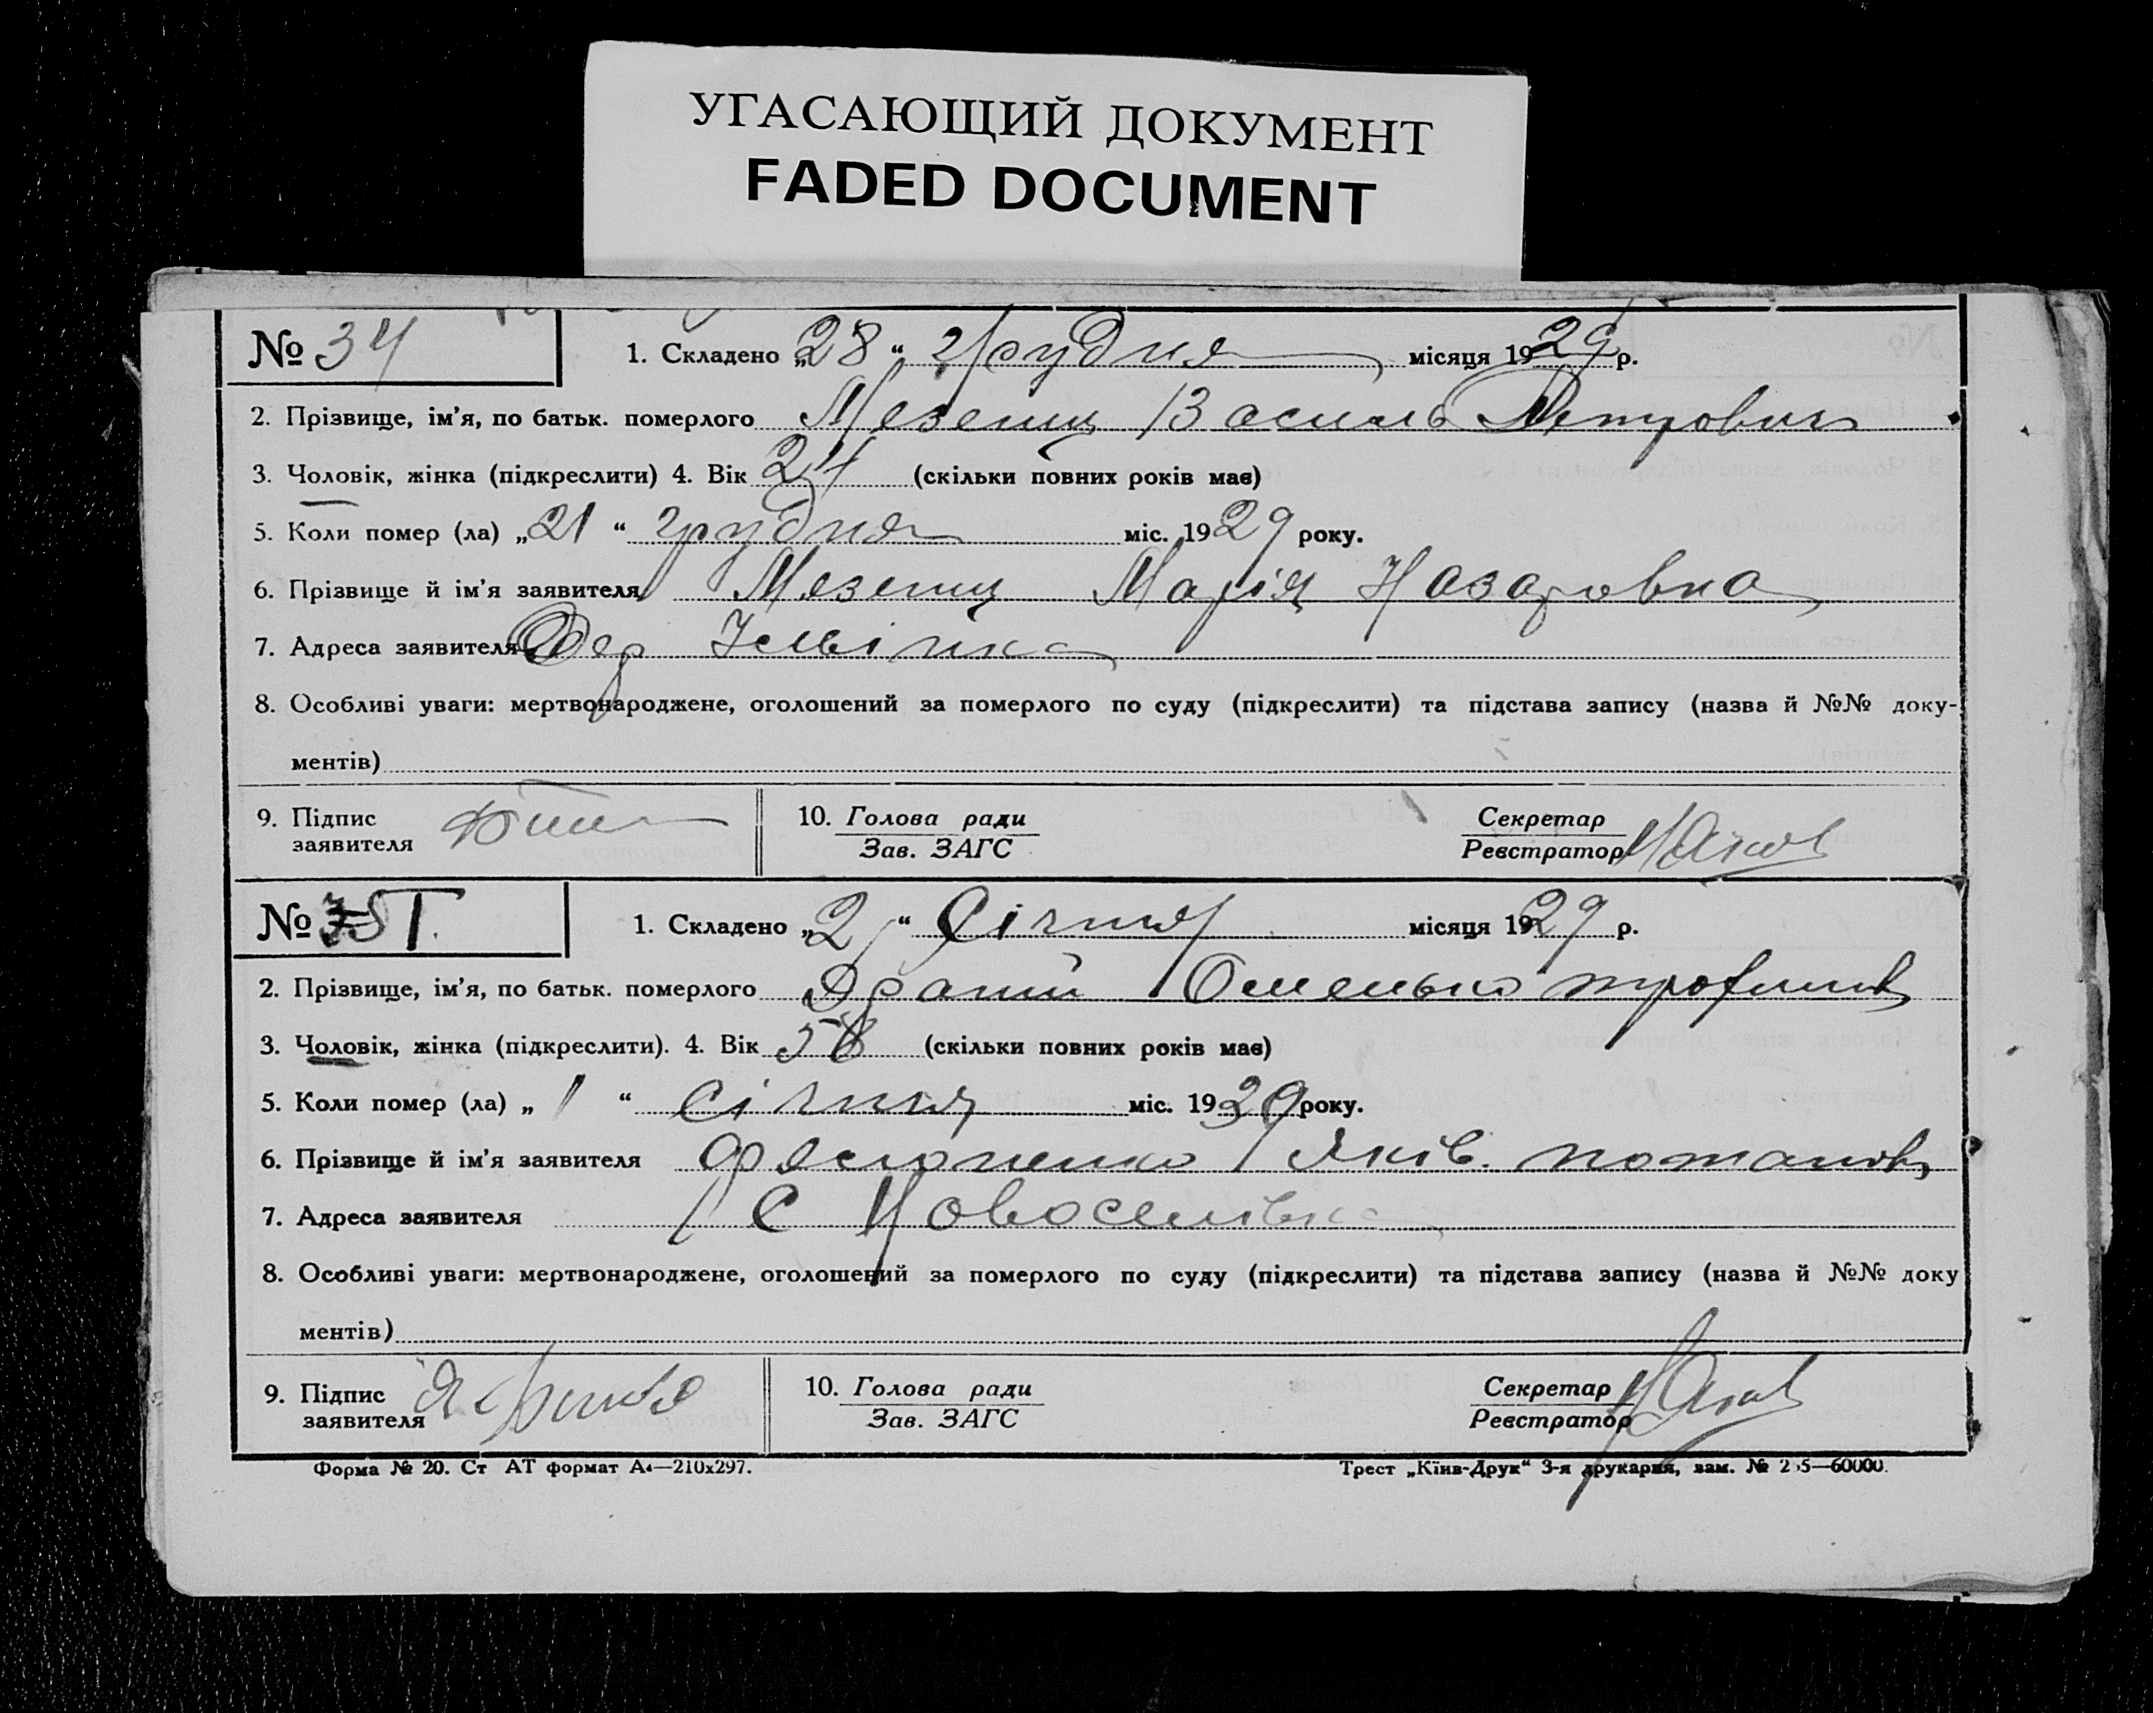 УГАСАЮЩИЙ ДОКУМЕНТ
FADED DOCUMENT
№ 34 1. Складено „28“ грудня місяця 1929 р.
2. Прізвище, ім’я, по батьк. померлого Мезенц Василь Петрович
3. Чоловік, жінка (підкреслити) 4. Вік 24 (скільки повних років має)
5. Коли помер (ла) „21“ грудня міс. 1929 року.
6. Прізвище й ім’я заявителя Мезенц Марія Назаровна
7. Адреса заявителя
8. Особливі уваги: мертвонароджене, оголошений за померлого по суду (підкреслити) та підстава запису (назва й №№ доку-
ментів)
9. Підпис
заявителя
10. Голова ради
Зав. ЗАГС
Секретар
Реєстратор
№ 1. Складено „2“ Січня місяця 1929 р.
2. Прізвище, ім’я, по батьк. померлого Омелько
3. Чоловік, жінка (підкреслити). 4. Вік 58 (скільки повних років має)
5. Коли помер (ла) „1“ січня міс. 1929 року.
6. Прізвище й ім’я заявителя Яків
7. Адреса заявителя с Новоселівка
8. Особливі уваги: мертвонароджене, оголошений за померлого по суду (підкреслити) та підстава запису (назва й №№ доку
ментів)
9. Підпис
заявителя
10. Голова ради
Зав. ЗАГС
Секретар
Реєстратор
Форма № 20. Ст АТ формат А4—210х297. Трест „Київ-Друк“ 3-я друкарня, зам. №